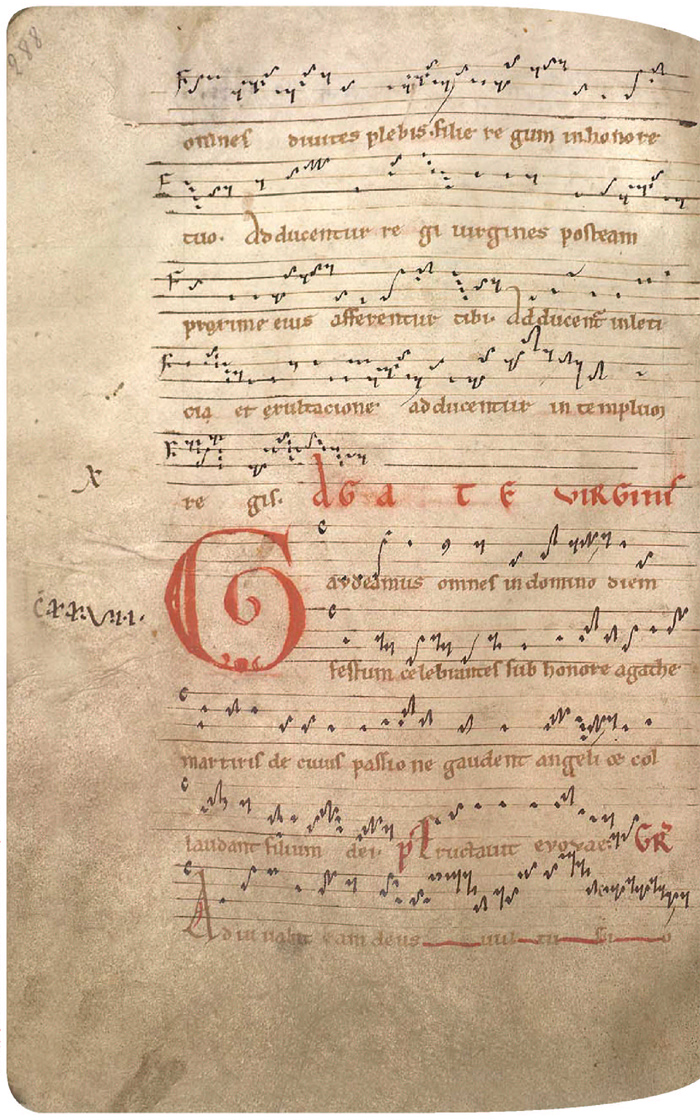 288
omnes divites plebis. filie re gum in honore
tuo. Adducentur re gi virgines posteam
proxime eius afferentur tibi. Adducent̄ in leti
cia et exultacione adducentur in templum
re gis. AGATE VIRGINIS
X
Gavdeamus omnes in domino diem
festum celebrantes sub honore agathe
martiris de cuius passione gaudent angeli et col
laudant filium dei. ps Eructauit evovae. GR
Adiuvabit eam deus vul tu su o